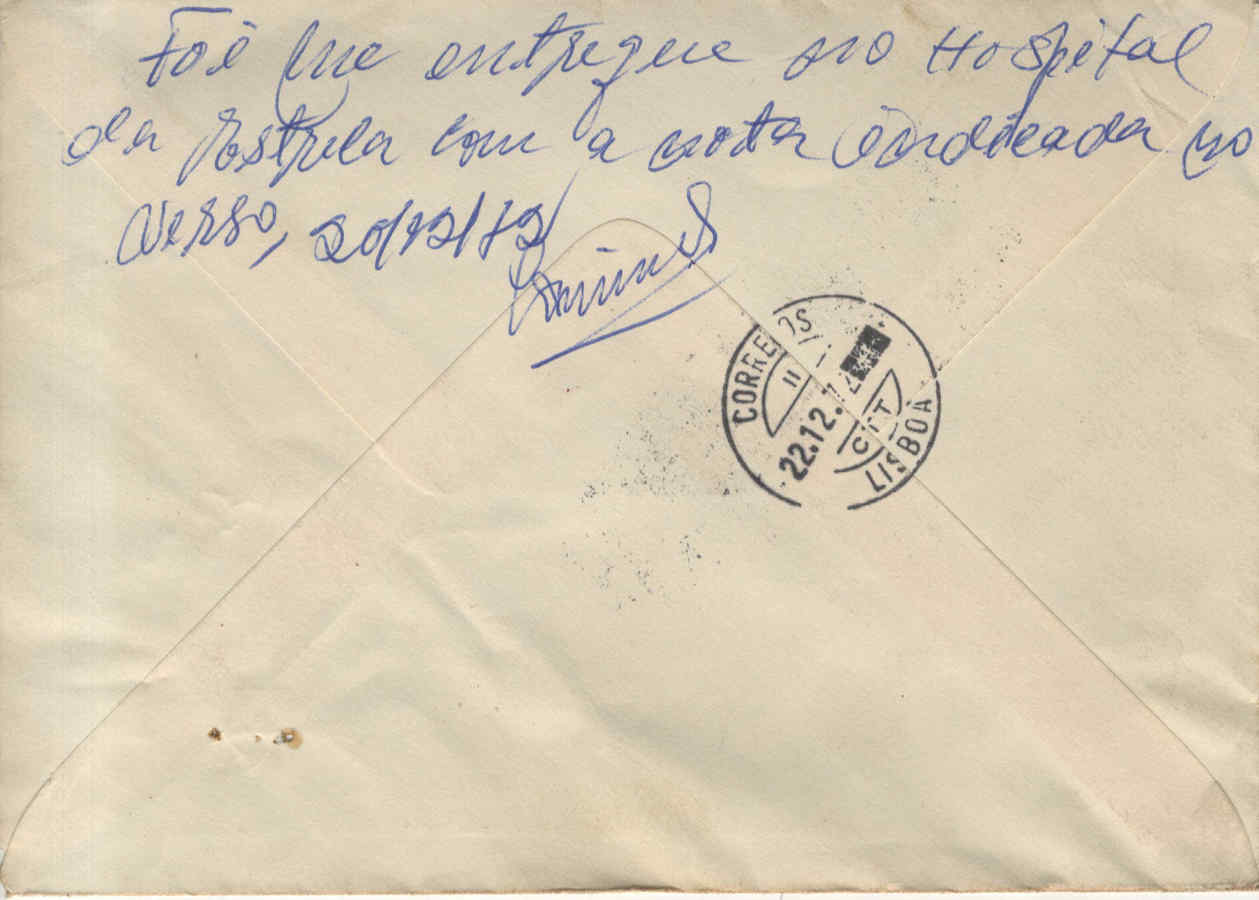 Foi me entregue no Hospital
da Estrela com a nota indicada no
verso, 20/12/72
CORREIOS
22.12.72
CTT
LISBOA